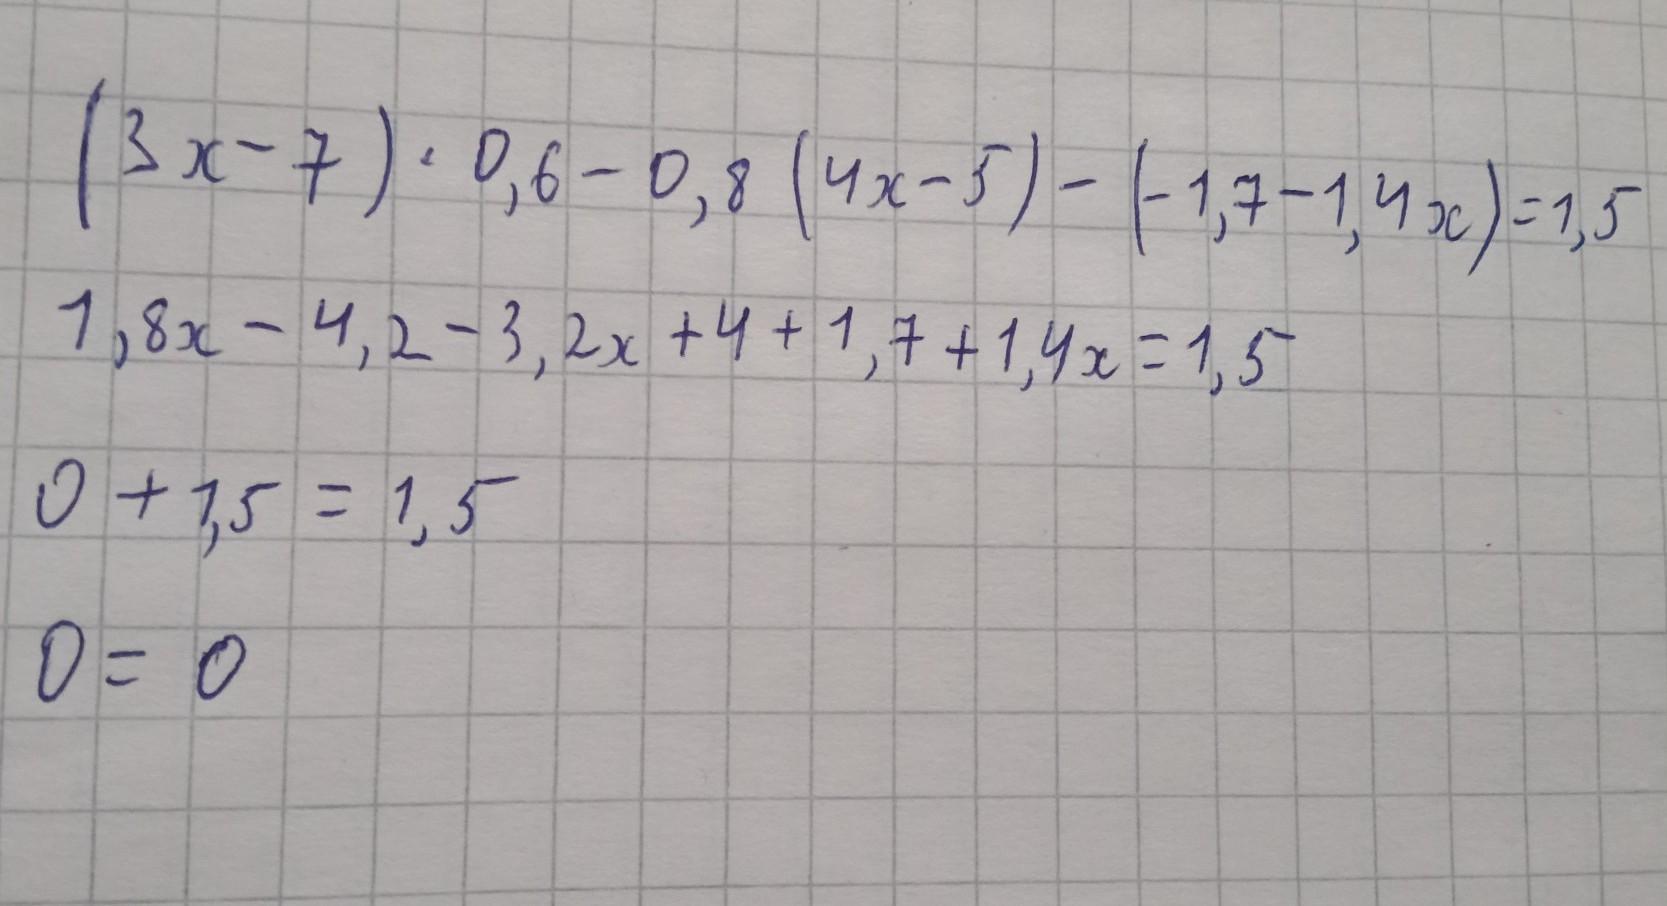 (3x-7)·0,6-0,8(4x-5)-(-1,7-1,4x)=1,5
1,8x-4,2-3,2x+4+1,7+1,4x=1,5
0+1,5=1,5
0=0